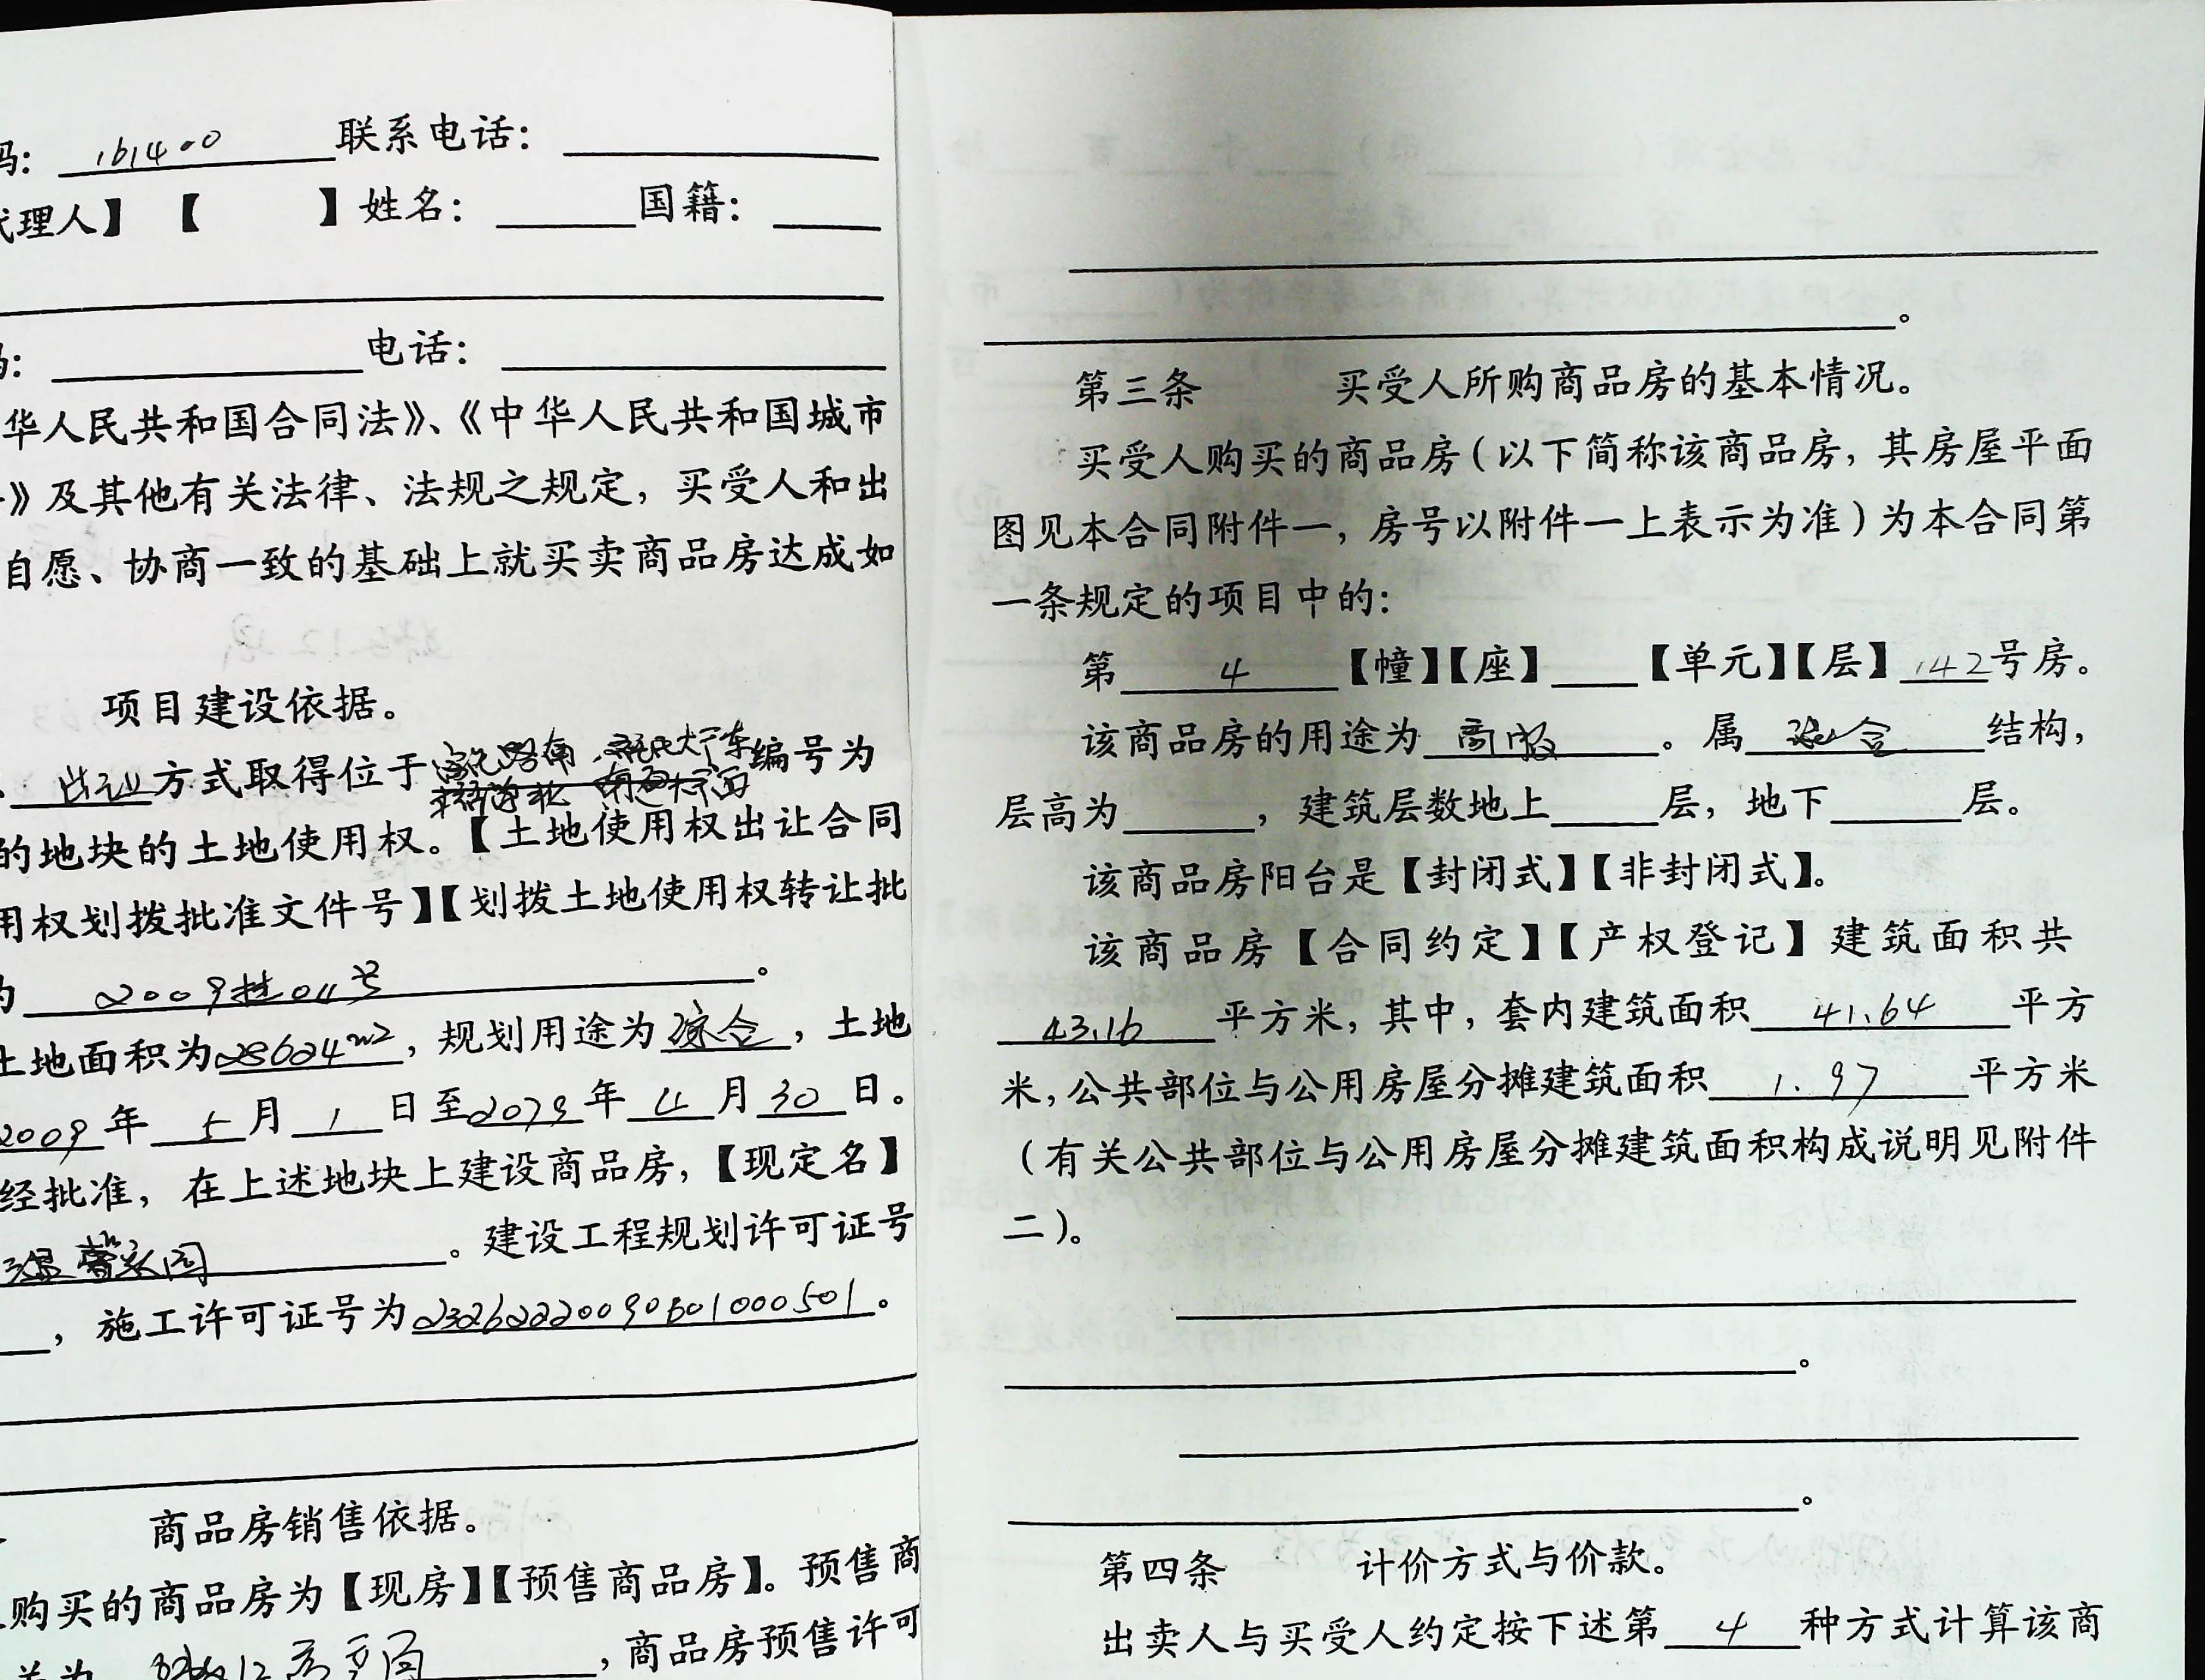 码: 161400 联系电话:
代理人】【 】姓名: 国籍:
电话:
华人民共和国合同法》、《中华人民共和国城市
》及其他有关法律、法规之规定, 买受人和出
自愿、协商一致的基础上就买卖商品房达成如
项目建设依据。
出让方式取得位于 编号为
的地块的土地使用权。【土地使用权出让合同
用权划拨批准文件号】【划拨土地使用权转让批
为 2009挂011号。
土地面积为28624m2, 规划用途为综合, 土地
2009年5月1日至2079年4月30日。
经批准, 在上述地块上建设商品房,【现定名】
温馨家园。建设工程规划许可证号
, 施工许可证号为 。
商品房销售依据。
购买的商品房为【现房】【预售商品房】。预售商
, 商品房预售许可
。
第三条 买受人所购商品房的基本情况。
买受人购买的商品房(以下简称该商品房, 其房屋平面
图见本合同附件一, 房号以附件一上表示为准)为本合同第
一条规定的项目中的:
第 4 【幢】【座】 【单元】【层】142号房。
该商品房的用途为 商服 。属 混合 结构,
层高为 , 建筑层数地上 层, 地下 层。
该商品房阳台是【封闭式】【非封闭式】。
该商品房【合同约定】【产权登记】建筑面积共
43.16 平方米, 其中, 套内建筑面积 41.64 平方
米, 公共部位与公用房屋分摊建筑面积 1.97 平方米
(有关公共部位与公用房屋分摊建筑面积构成说明见附件
二)。
。
。
第四条 计价方式与价款。
出卖人与买受人约定按下述第 4 种方式计算该商